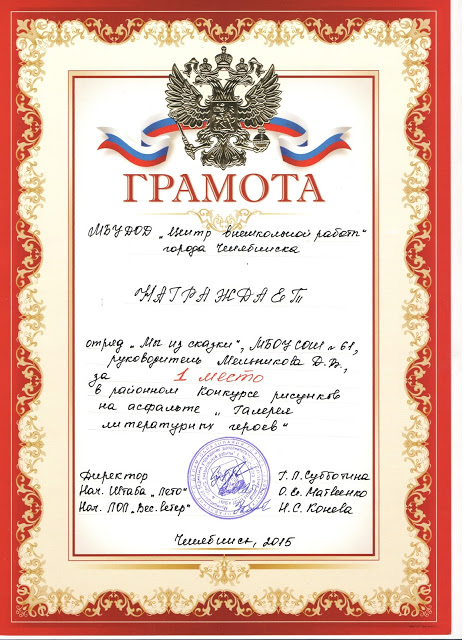 ГРАМОТА
МБУДОД „Центр внешкольной работы"
города Челябинска
НАГРАЖДАЕТ
отряд „Мы из сказки", МБОУ СОШ № 61,
руководитель Мельникова Д.В.,
за 1 место
в районном Конкурсе рисунков
на асфальте „Галерея
литературных героев"
Директор Г.П.Субботина
Нач. Штаба „Лето" О.В. Матвеенко
Нач. ЛОП „Вес. ветер" Н.С. Конева
Челябинск, 2015